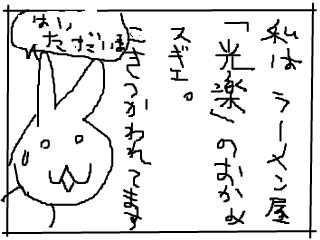 私は ラーメン屋
「光楽」のおかみ
スギエ。
こきつかわれてます
はい
ただいま